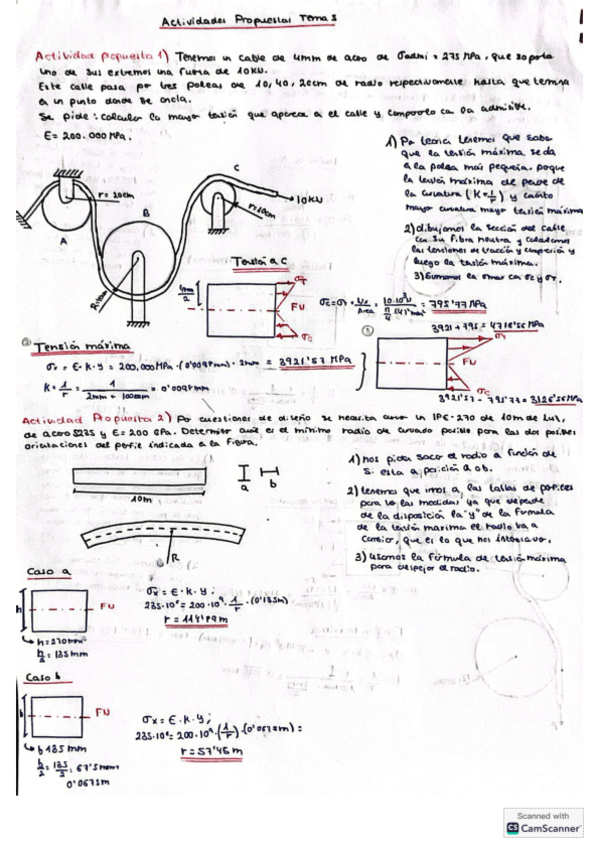 Actividades Propuestas Tema 3
Actividad propuesta 1) Tenemos un cable de 4mm de acero de σadmi = 275 MPa, que soporta
uno de sus extremos una fuerza de 10KN.
Este cable pasa por tres poleas de 10, 40, 20cm de radio respectivamente hasta que termina
en un punto donde se ancla.
Se pide: calcular la mayor tensión que aparece en el cable y compararla con la admisible.
E = 200.000 MPa.
1) Por teoría tenemos que saber
que la tensión máxima se da
en la polea más pequeña. porque
la tensión máxima depende de
la curvatura (K = 1/r) y cuanto
mayor curvatura mayor tensión máxima
2) dibujamos la sección del cable
con su fibra neutra y calculamos
las tensiones de tracción y compresión y
luego la tensión máxima.
3) Sumamos la σmax con σc y σT.
r = 20cm
A
B
C
R=40cm
r=10cm
10KN
Tensión a C
4mm/2
σT
FN
σc
795'77 MPa
② Tensión máxima
σT = E · K · y = 200.000MPa · (0'0098 mm) · 2mm = 3921'57 MPa
K = 1/r = 1/(2mm + 100mm) = 0'0098mm
③
3921 + 795 = 4716'56 MPa
σT
FN
σc
3921'57 - 795'77 = 3126'56 MPa
Actividad Propuesta 2) Por cuestiones de diseño se necesita curvar un IPE-270 de 10m de luz,
de acero S235 y E = 200 GPa. Determinar cual es el mínimo radio de curvado posible para las dos posibles
orientaciones del perfil indicada en la figura.
10m
a
b
R
1) nos pide sacar el radio en función de
si esta en posición a o b.
2) tenemos que irnos a las tablas de perfiles
para ver las medidas ya que depende
de la disposición la "y" de la fórmula
de la tensión maxima el radio va a
cambiar, que es lo que nos interesa.
3) usamos la fórmula de tensión máxima
para despejar el radio.
Caso a
h
FN
h=270mm
h/2 = 135mm
σx = E · K · y;
235·10⁶ = 200·10⁹ · 1/r · (0'135m)
r = 114'89 m
Caso b
b
FN
b 135 mm
b/2 = 135/2 = 67'5mm
0'0675m
σx = E · K · y;
235·10⁶ = 200·10⁹ · (1/r) · (0'0675m) =
r = 57'45 m
Scanned with
CS CamScanner